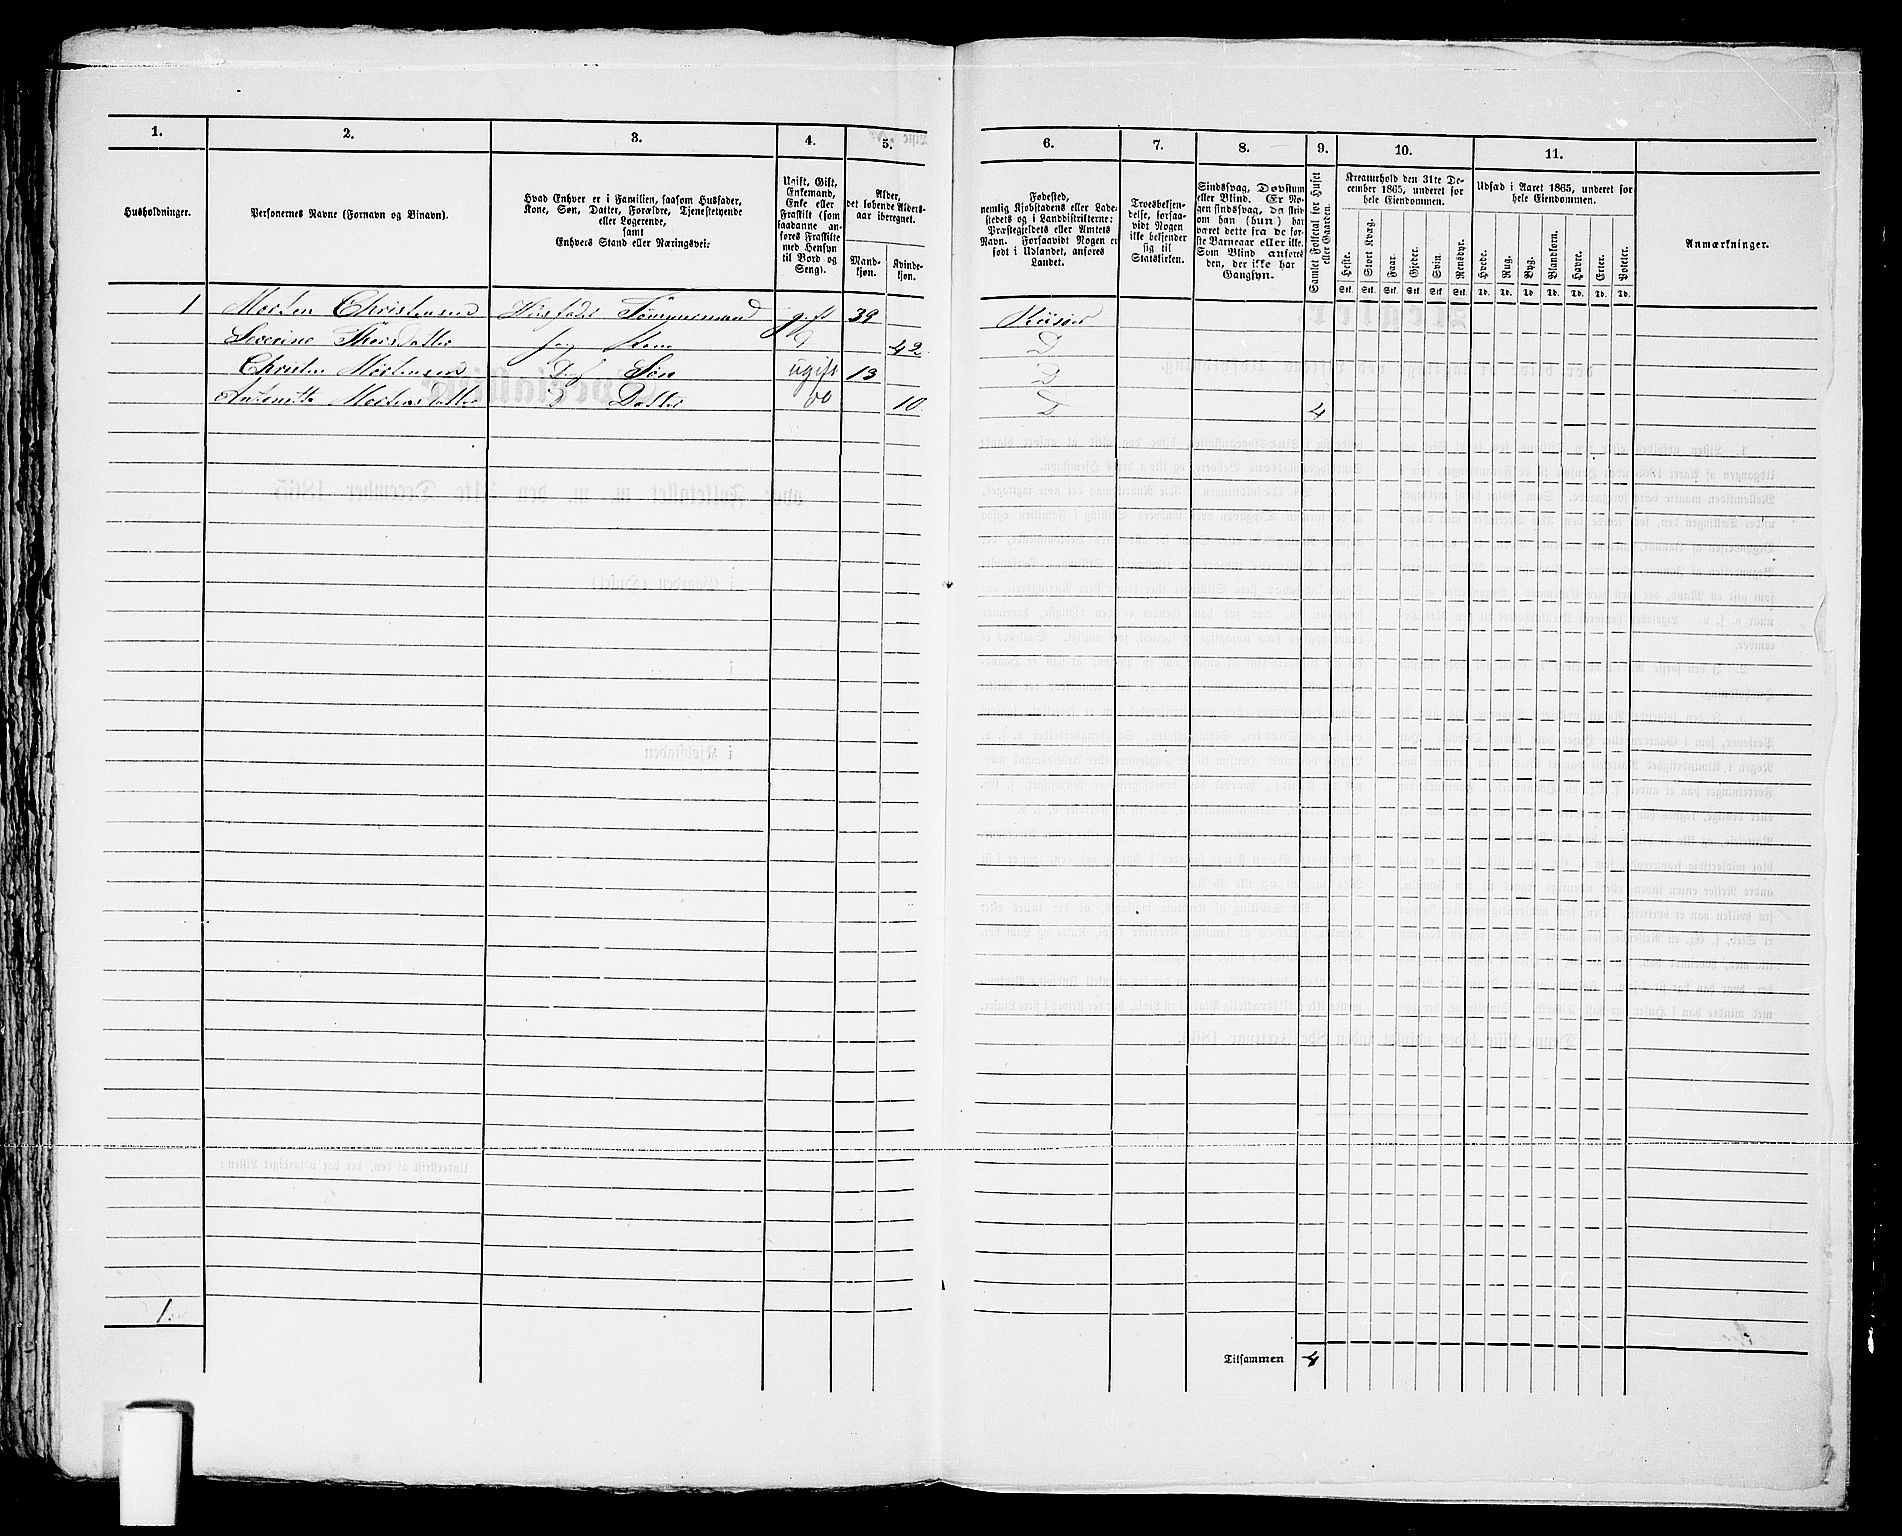 1. 2. 3. 4. 5. 6. 7. 8. 9. 10. 11.
Husholdninger.
Personernes Navne (Fornavn og Binavn).
Hvad Enhver er i Familien, saasom Husfader,
Kone, Søn, Datter, Forældre, Tjenestetyende
eller Logerende,
samt
Enhvers Stand eller Næringsvei:
Ugift, Gift,
Enkemand,
Enke eller
Fraskilt (som
saadanne an-
føres Fraskilte
med Hensyn
til Bord og
Seng).
Alder,
det løbende Alders-
aar iberegnet.
Mand-
kjøn.
Kvinde-
kjøn.
Fødested,
nemlig Kjøbstadens eller Lade-
stedets og i Landdistrikterne:
Præstegjeldets eller Amtets
Navn. Forsaavidt Nogen er
født i Udlandet, anføres
Landet.
Troesbekjen-
delse, forsaa-
vidt Nogen
ikke bekjender
sig til
Statskirken.
Sindssvag, Døvstum
eller Blind. Er No-
gen sindssvag, da
om han (hun) har
været dette fra de før-
ste Barneaar eller ikke.
Som Blind anføres
den, der ikke har
Gangsyn.
Samlet Folketal for Huset
eller Gaarden.
Kreaturhold den 31te De-
cember 1865, underet for
hele Eiendommen.
Heste. Stort Kvæg. Faar. Gjeder. Svin. Rensdyr.
Stk. Stk. Stk. Stk. Stk. Stk.
Udsæd i Aaret 1865, underet for
hele Eiendommen.
Hvede. Rug. Byg. Blandkorn. Havre. Erter. Poteter.
Td. Td. Td. Td. Td. Td. Td.
Anmærkninger.
1 Morten Christensen Husfader Tømmermand gift 39 Riisør
Severine Thorsdatter Kone D 42. D
Christen Mortensen D Søn ugift 13 D
Mortensdatter D Datter do 10. D 4
1.
Tilsammen 4